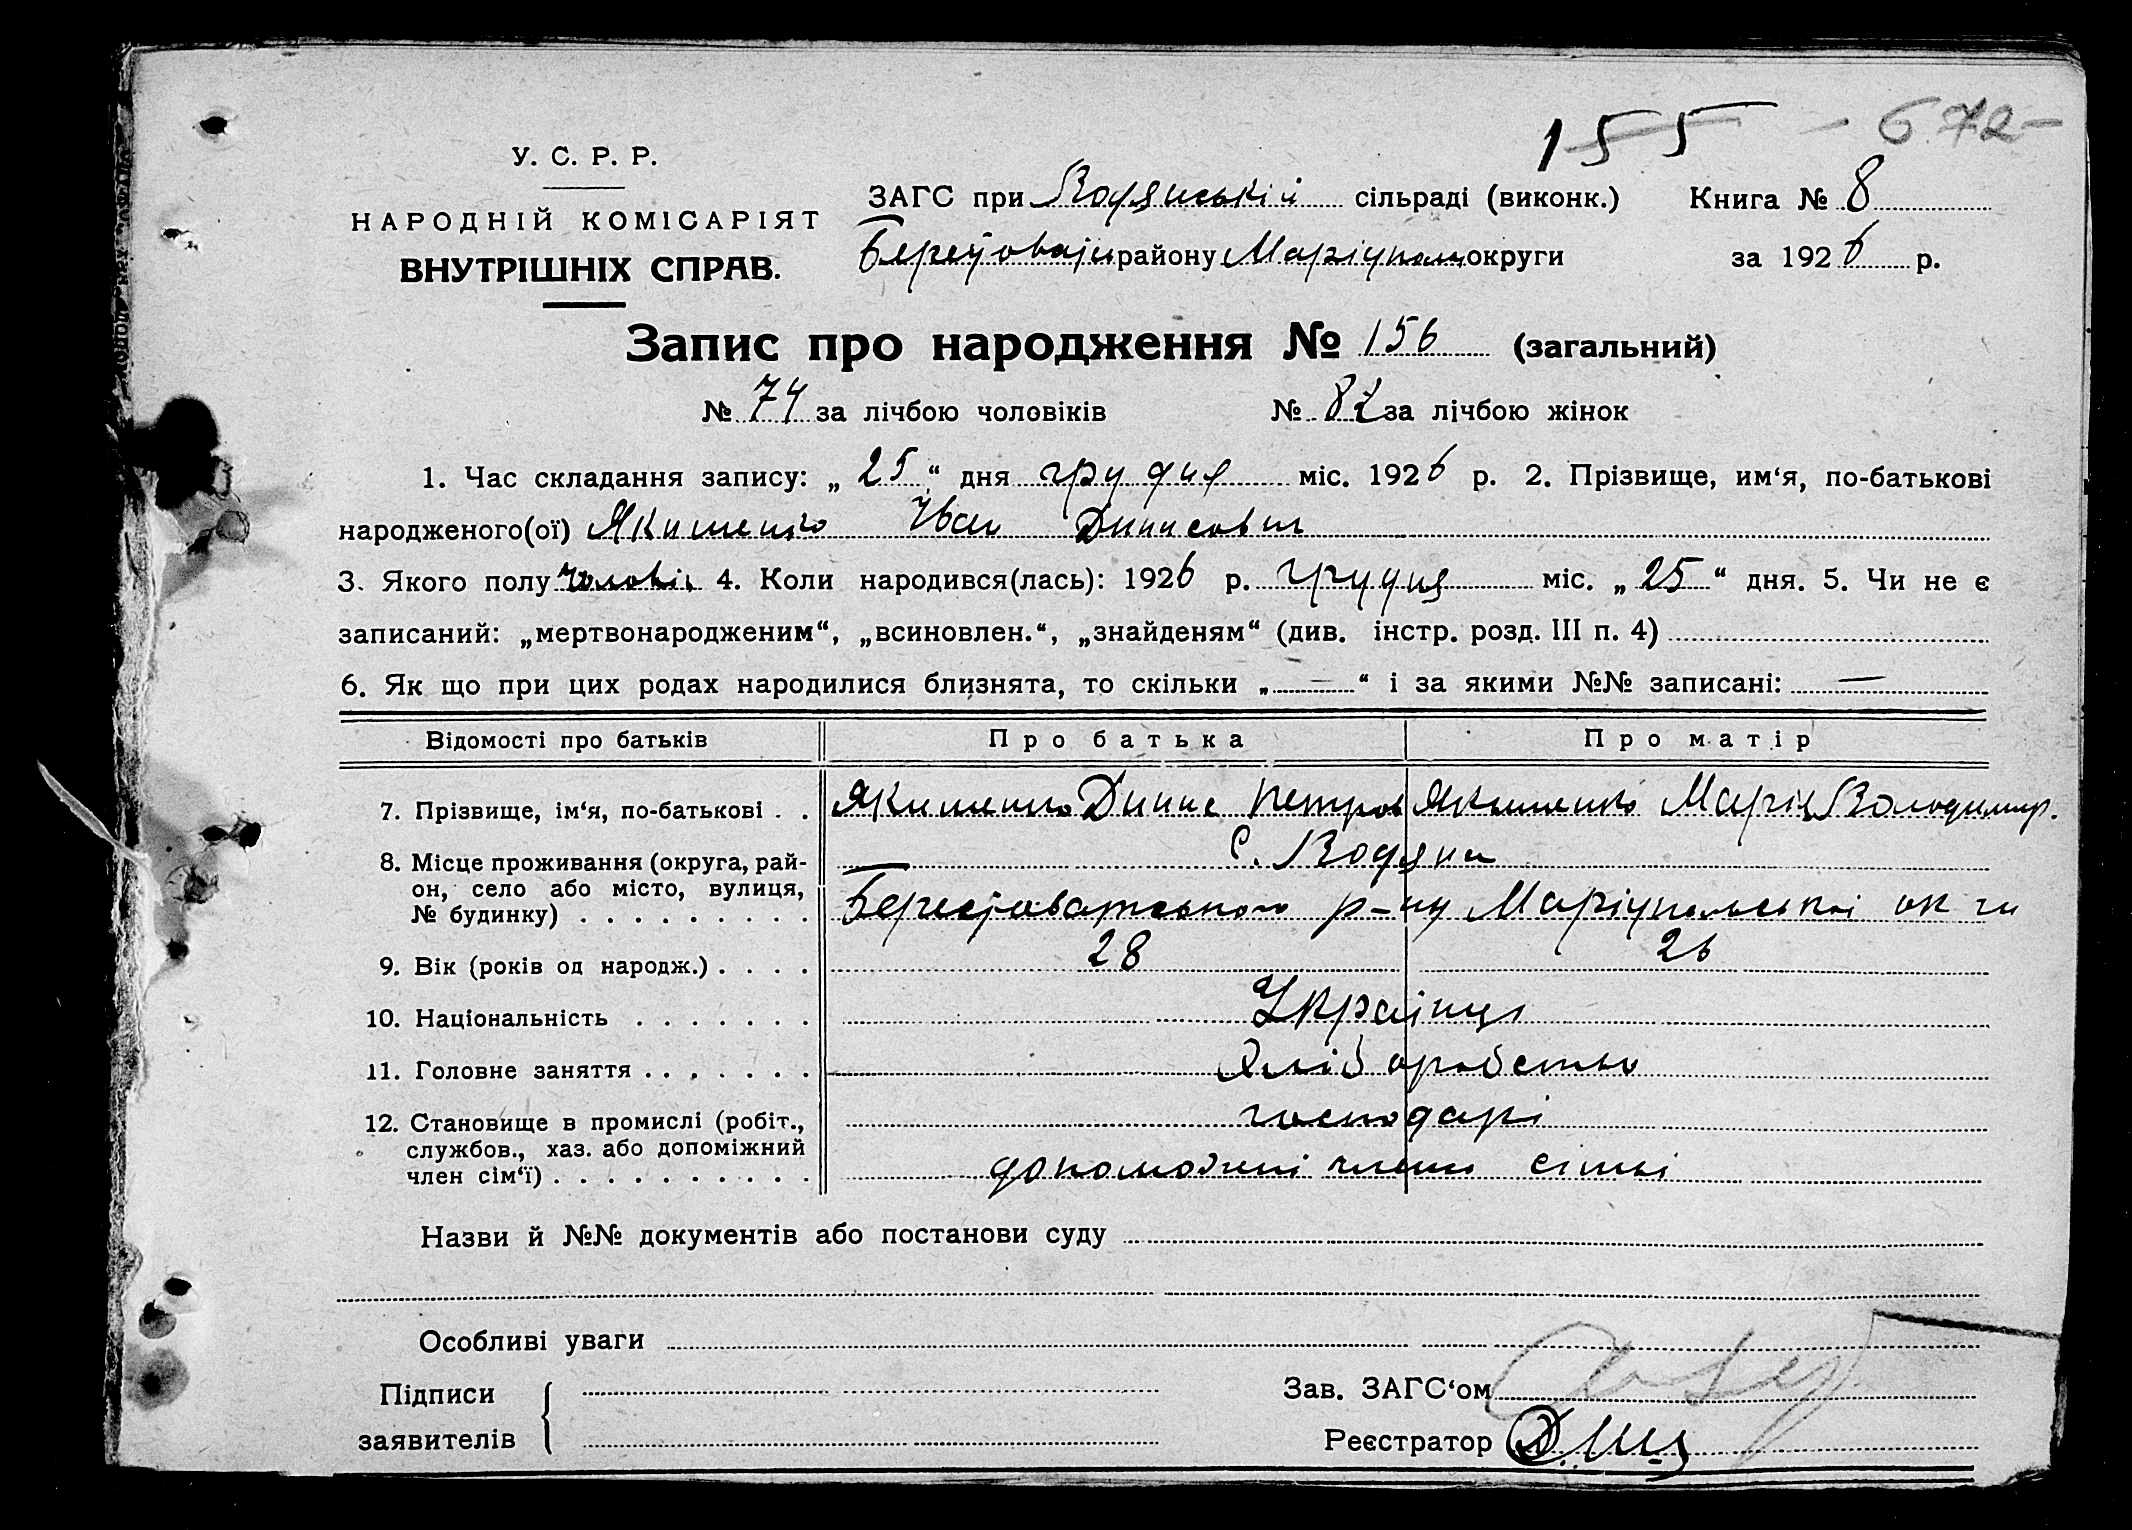 155 - 672 -
У. С. Р. Р.
НАРОДНІЙ КОМІСАРІЯТ
ВНУТРІШНІХ СПРАВ.
ЗАГС при Водянській сільраді (виконк.) Книга № 8
району Маріупол. округи за 1926 р.
Запис про народження № 156 (загальний)
№ 74 за лічбою чоловіків № 82 за лічбою жінок
1. Час складання запису: „ 25 “ дня грудня міс. 1926 р. 2. Прізвище, им‘я, по-батькові
народженого(ої) Якименко Іван Динисович
3. Якого полу чоловіч. 4. Коли народився(лась): 1926 р. грудня міс. „ 25 “ дня. 5. Чи не є
записаний: „мертвонародженим“, „всиновлен.“, „знайденям“ (див. інстр. розд. III п. 4)
6. Як що при цих родах народилися близнята, то скільки „ — “ і за якими №№ записані: —
Відомості про батьків Про батька Про матір
7. Прізвище, ім‘я, по-батькові . . Якименко Динис Петров Якименко Марія Володимир.
8. Місце проживання (округа, рай- С. Водяна
он, село або місто, вулиця,
№ будинку) . . . . . . . . . Берестоватського р-ну Маріупольської ок ги
9. Вік (років од народж.) . . . . 28 26
10. Національність . . . . . . . Українці
11. Головне заняття . . . . . . . Хліборобство
12. Становище в промислі (робіт., господарі
службов., хаз. або допоміжний
член сім‘ї) . . . . . . . . . . допоможні члени сімьї
Назви й №№ документів або постанови суду
Особливі уваги
Підписи
заявителів
Зав. ЗАГС‘ом
Реєстратор